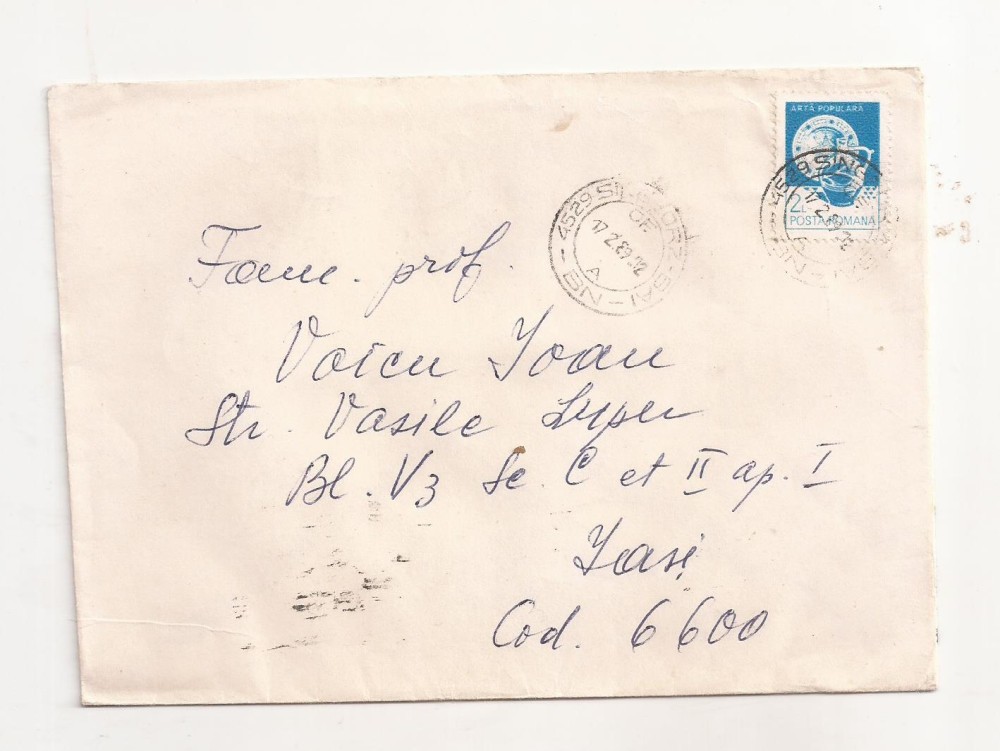 ARTĂ POPULARĂ
2L
POSTA ROMANA
4529 SINGEORZ BĂI - BN
OF
17.2.89
A
4529 SING
17.2.89
A
BN
Fam. prof.
Voicu Ioan
Str. Vasile Lupu
Bl. V3 Sc. C et II ap. I
Iași
Cod. 6600